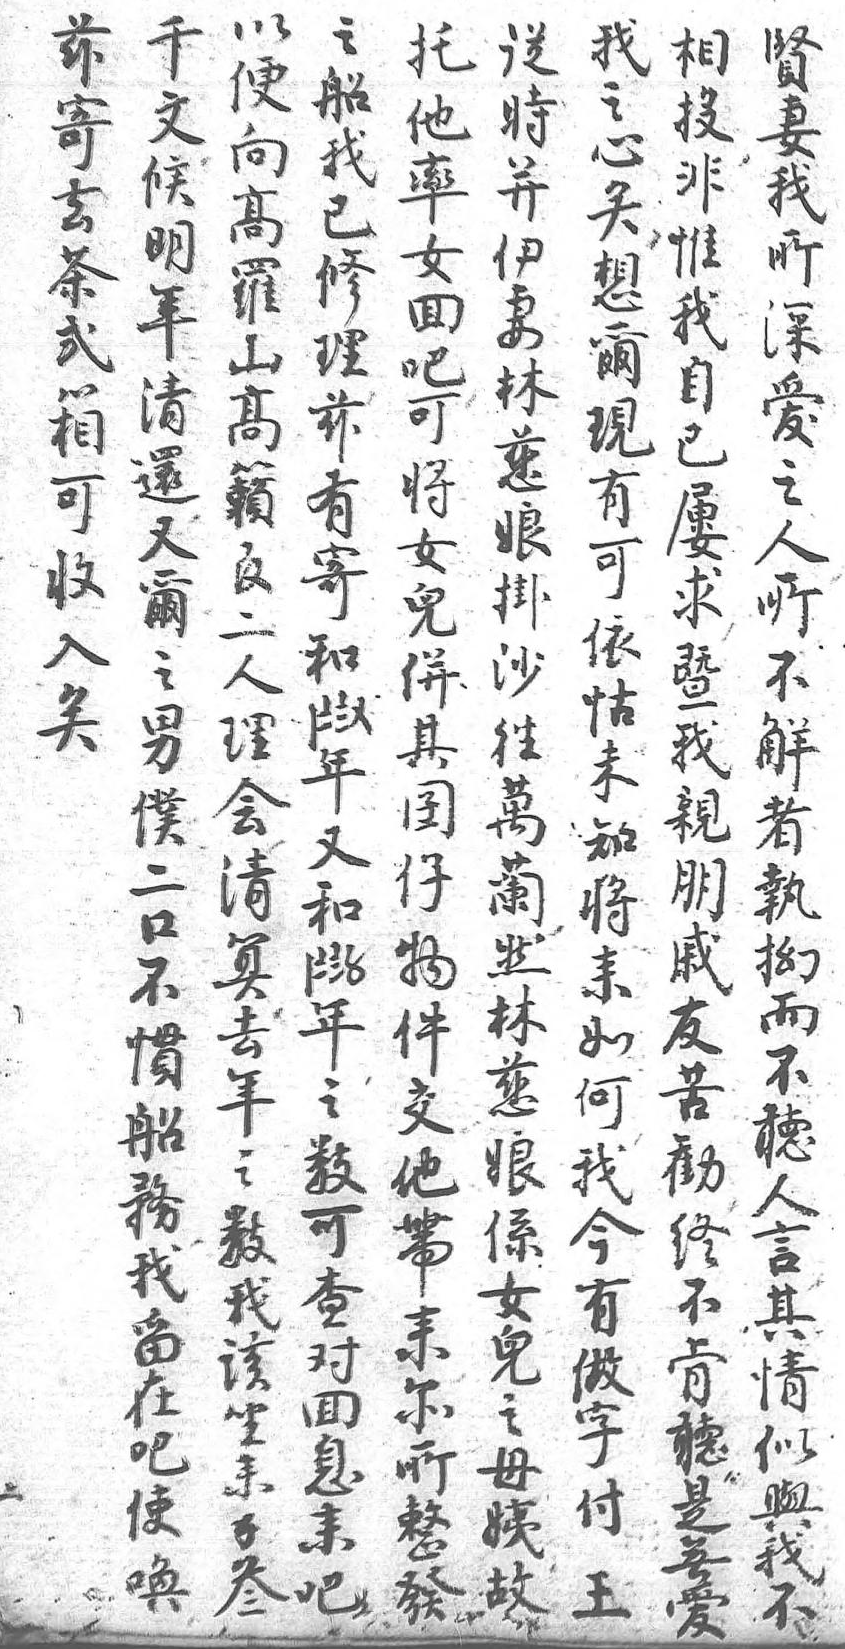 賢妻我所深愛之人所不解者執拗而不聽人言其情似與我不
相投非惟我自己屢求暨我親朋戚友苦勸終不肯聽是無愛
我之心矣想爾現有可依怙未知將来如何我今有做字付王
送時并伊妻林慈娘掛沙往萬蘭然林慈娘係女兒之母姨故
托他率女回吧可將女兒併其囝仔物件交他帶来尔所整發
之船我已修理茲有寄和年又和年之数可查对回息来吧
以便向高羅山高籟良二人理会清算去年之数我該坐未叁
千文候明年清還又爾之男僕二口不慣船務我留在吧使喚
茲寄去茶弍箱可收入矣